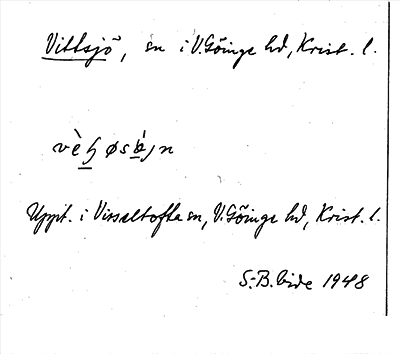 Vittsjö, sn i V. Göinge hd, Krist. l.
Uppt. i Visseltofta sn, V. Göinge hd, Krist. l.
S.-B. Vide 1948